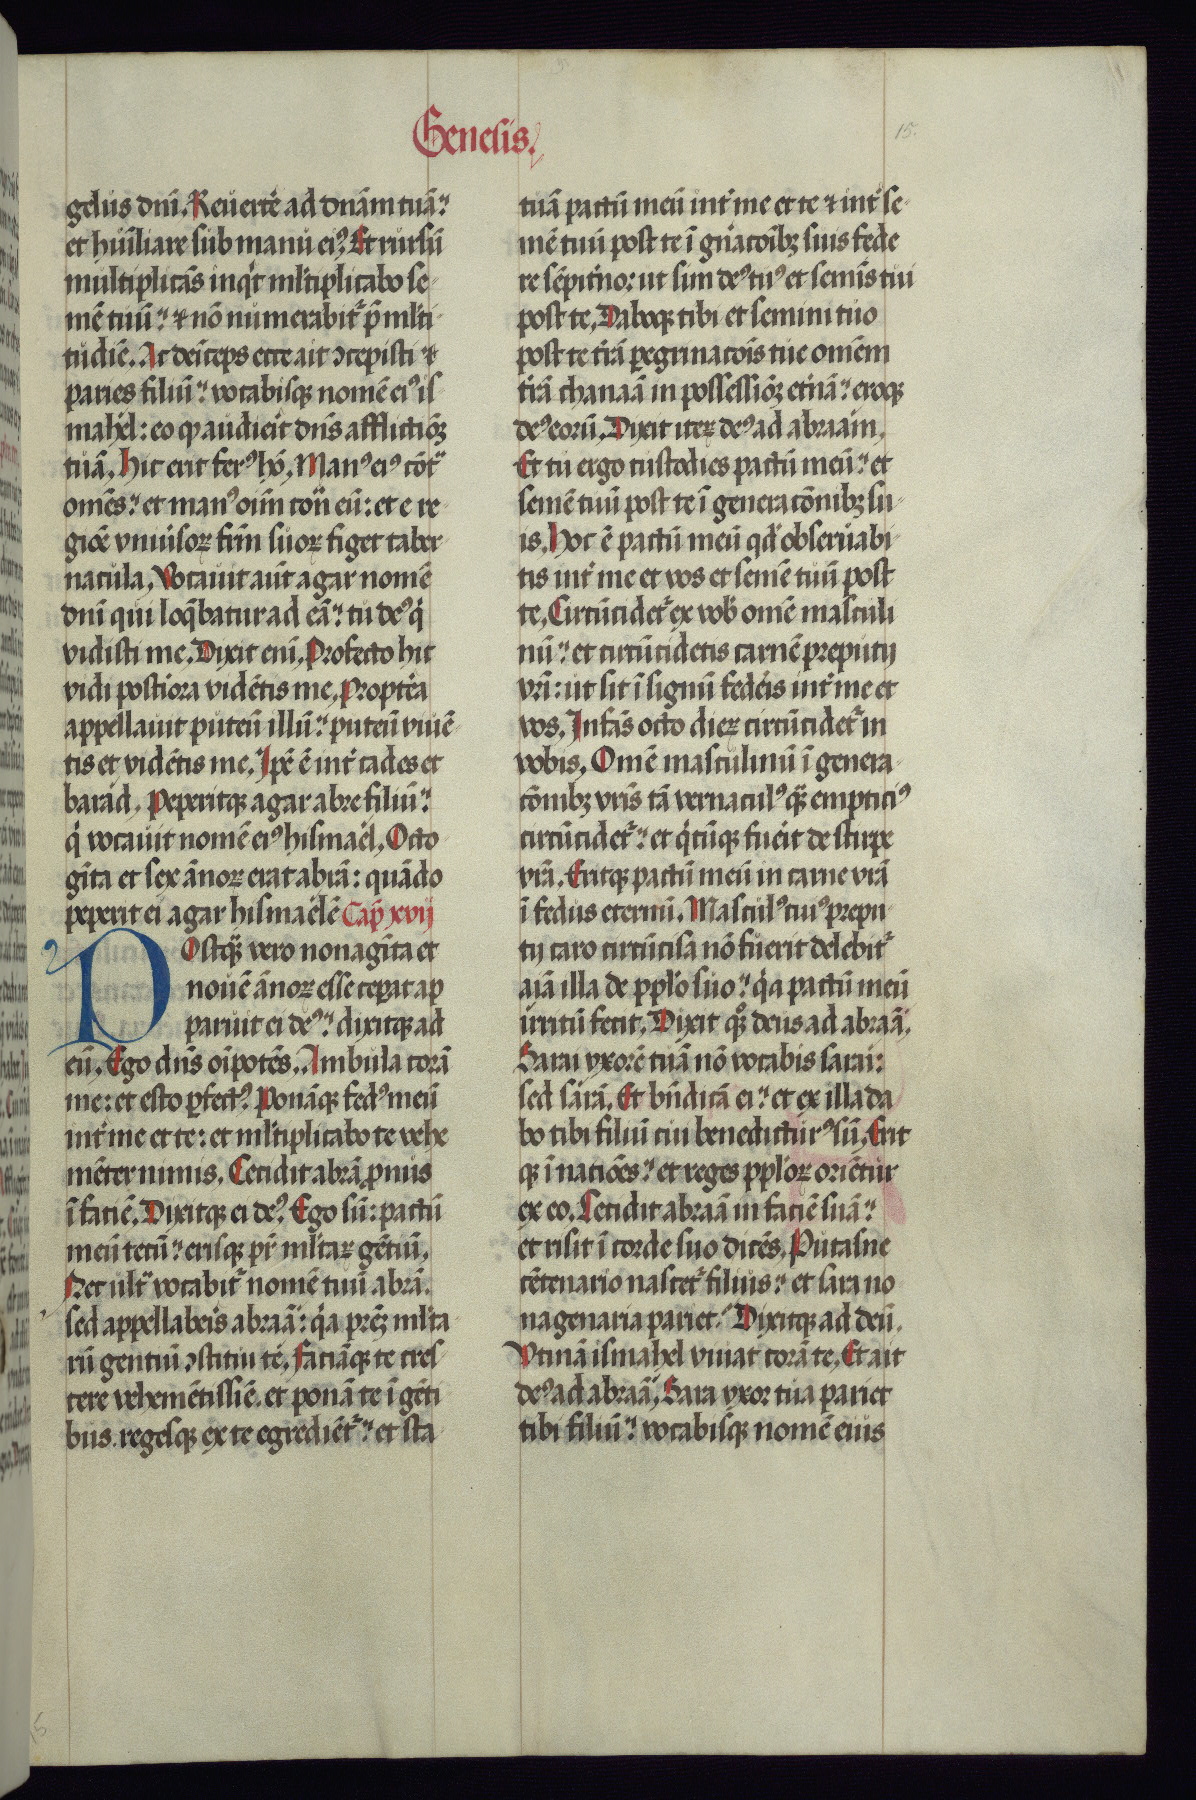 Genesis.
15.
gelus dnī. Reuertē ad dnām tuā:
et humīliare sub manu eiꝰ. Et rursū
multiplicās inqͥt mltiplicabo se-
mē tuū: ⁊ nō numerabitͬ p̄ mlti
tudīe. Ac deīceps ecce ait ↄcepisti ⁊
paries filiū: vocabisqꝫ nomē eiꝰ is
mahel: eo ꝙ audierit dn̄s afflictiōꝫ
tuā. Hic erit ferꝰ hō. Manꝰ eiꝰ cōtͣ
omēs: et manꝰ oīm cōtͣ eū: et e re-
giōe vniuīsoꝝ frīm suoꝝ figet taber-
nacula. Vocauit aūt agar nomē
dnī qui loqͣbatur ad eā: tu deꝰ qͥ
vidisti me. Dixit enī. Profecto hic
vidi postīora vidētis me. Propt̄ea
appellauit puteū illū: puteū viuē-
tis et vidētis me. Ip̄e ē int̄ cades et
barad. Peperitqꝫ agar abre filiū:
qͥ vocauit nomē eiꝰ hismael. Octo-
gīta et sex ānoꝝ erat abrā: quādo
peperit ei agar hismaelē Cap̄ xvij
POstqͣꝫ vero nonagīta et
nouē ānoꝝ esse ceperat ap
paruit ei deꝰ: dixitqꝫ ad
eū. Ego dn̄s oīpotēs. Ambula corā
me: et esto ꝑfectꝰ. Ponāqꝫ fedꝰ meū
int̄ me et te: et mltiplicabo te vehe
mēter nimis. Cecidit abrā ꝓnus
ī faciē. Dixitqꝫ ei deꝰ. Ego sū: pactū
meū tecū: erisqꝫ pr̄ mltaꝝ gētiū.
Nec ultͣ vocabitͬ nomē tuū abrā.
sed appellaberis abraā: qͥa prēꝫ mlta
rū gentiū ↄstitui te. Faciāqꝫ te cres-
cere vehemētissīe. et ponā te ī gēti
bus. regesqꝫ ex te egrediētͬ: et sta
tuā pactū meū int̄ me et te ⁊ int̄ se-
mē tuū post te ī gn̄acoībꝫ suis fede
re sēpit̄no: ut sim deꝰ tuꝰ et semīs tui
post te. Daboqꝫ tibi et semini tuo
post te t̄rā ꝑegrinacōis tue omēm
t̄rā chanaā in possessiōꝫ et̄nā: eroqꝫ
deꝰ eorū. Dixit iteꝝ deꝰ ad abraam.
Et tu ergo custodies pactū meū: et
semē tuū post te ī generacōnibꝫ su-
is. Hoc ē pactū meū qd̄ obseruabi-
tis int̄ me et vos et semē tuū post
te. Circūcidetͬ ex vob̄ omē masculi
nū: et circūcidetis carnē preputij
vrī: ut sit ī signū federis int̄ me et
vos. Infās octo dieꝝ circūcidetͬ in
vobis. Omē masculinū ī genera-
cōnibꝫ vrīs tā vernaculꝰ qͣꝫ empticiꝰ
circūcidetͬ: et qͥcūqꝫ fuerit de stirpe
vrā. Eritqꝫ pactū meū in carne vrā
ī fedus eternū. Masculꝰ cuiꝰ prepu
tij caro circūcisa nō fuerit delebitͬ
aīa illa de pplo suo: qͥa pactū meū
irritū fecit. Dixit qͦꝫ deus ad abraā.
Sarai vxorē tuā nō vocabis sarai:
sed sarā. Et bn̄dicā ei: et ex illa da
bo tibi filiū cui benedicturꝰ sū. Erit
qꝫ ī naciōes: et reges pploꝝ oriētur
ex eo. Cecidit abraā in faciē suā:
et risit ī corde suo dicēs. Putasne
cētenario nascetͬ filius: et sara no
nagenaria pariet. Dixitqꝫ ad deū.
Vtinā ismahel viuat corā te. Et ait
deꝰ ad abraā. Sara vxor tua pariet
tibi filiū: vocabisqꝫ nomē eius